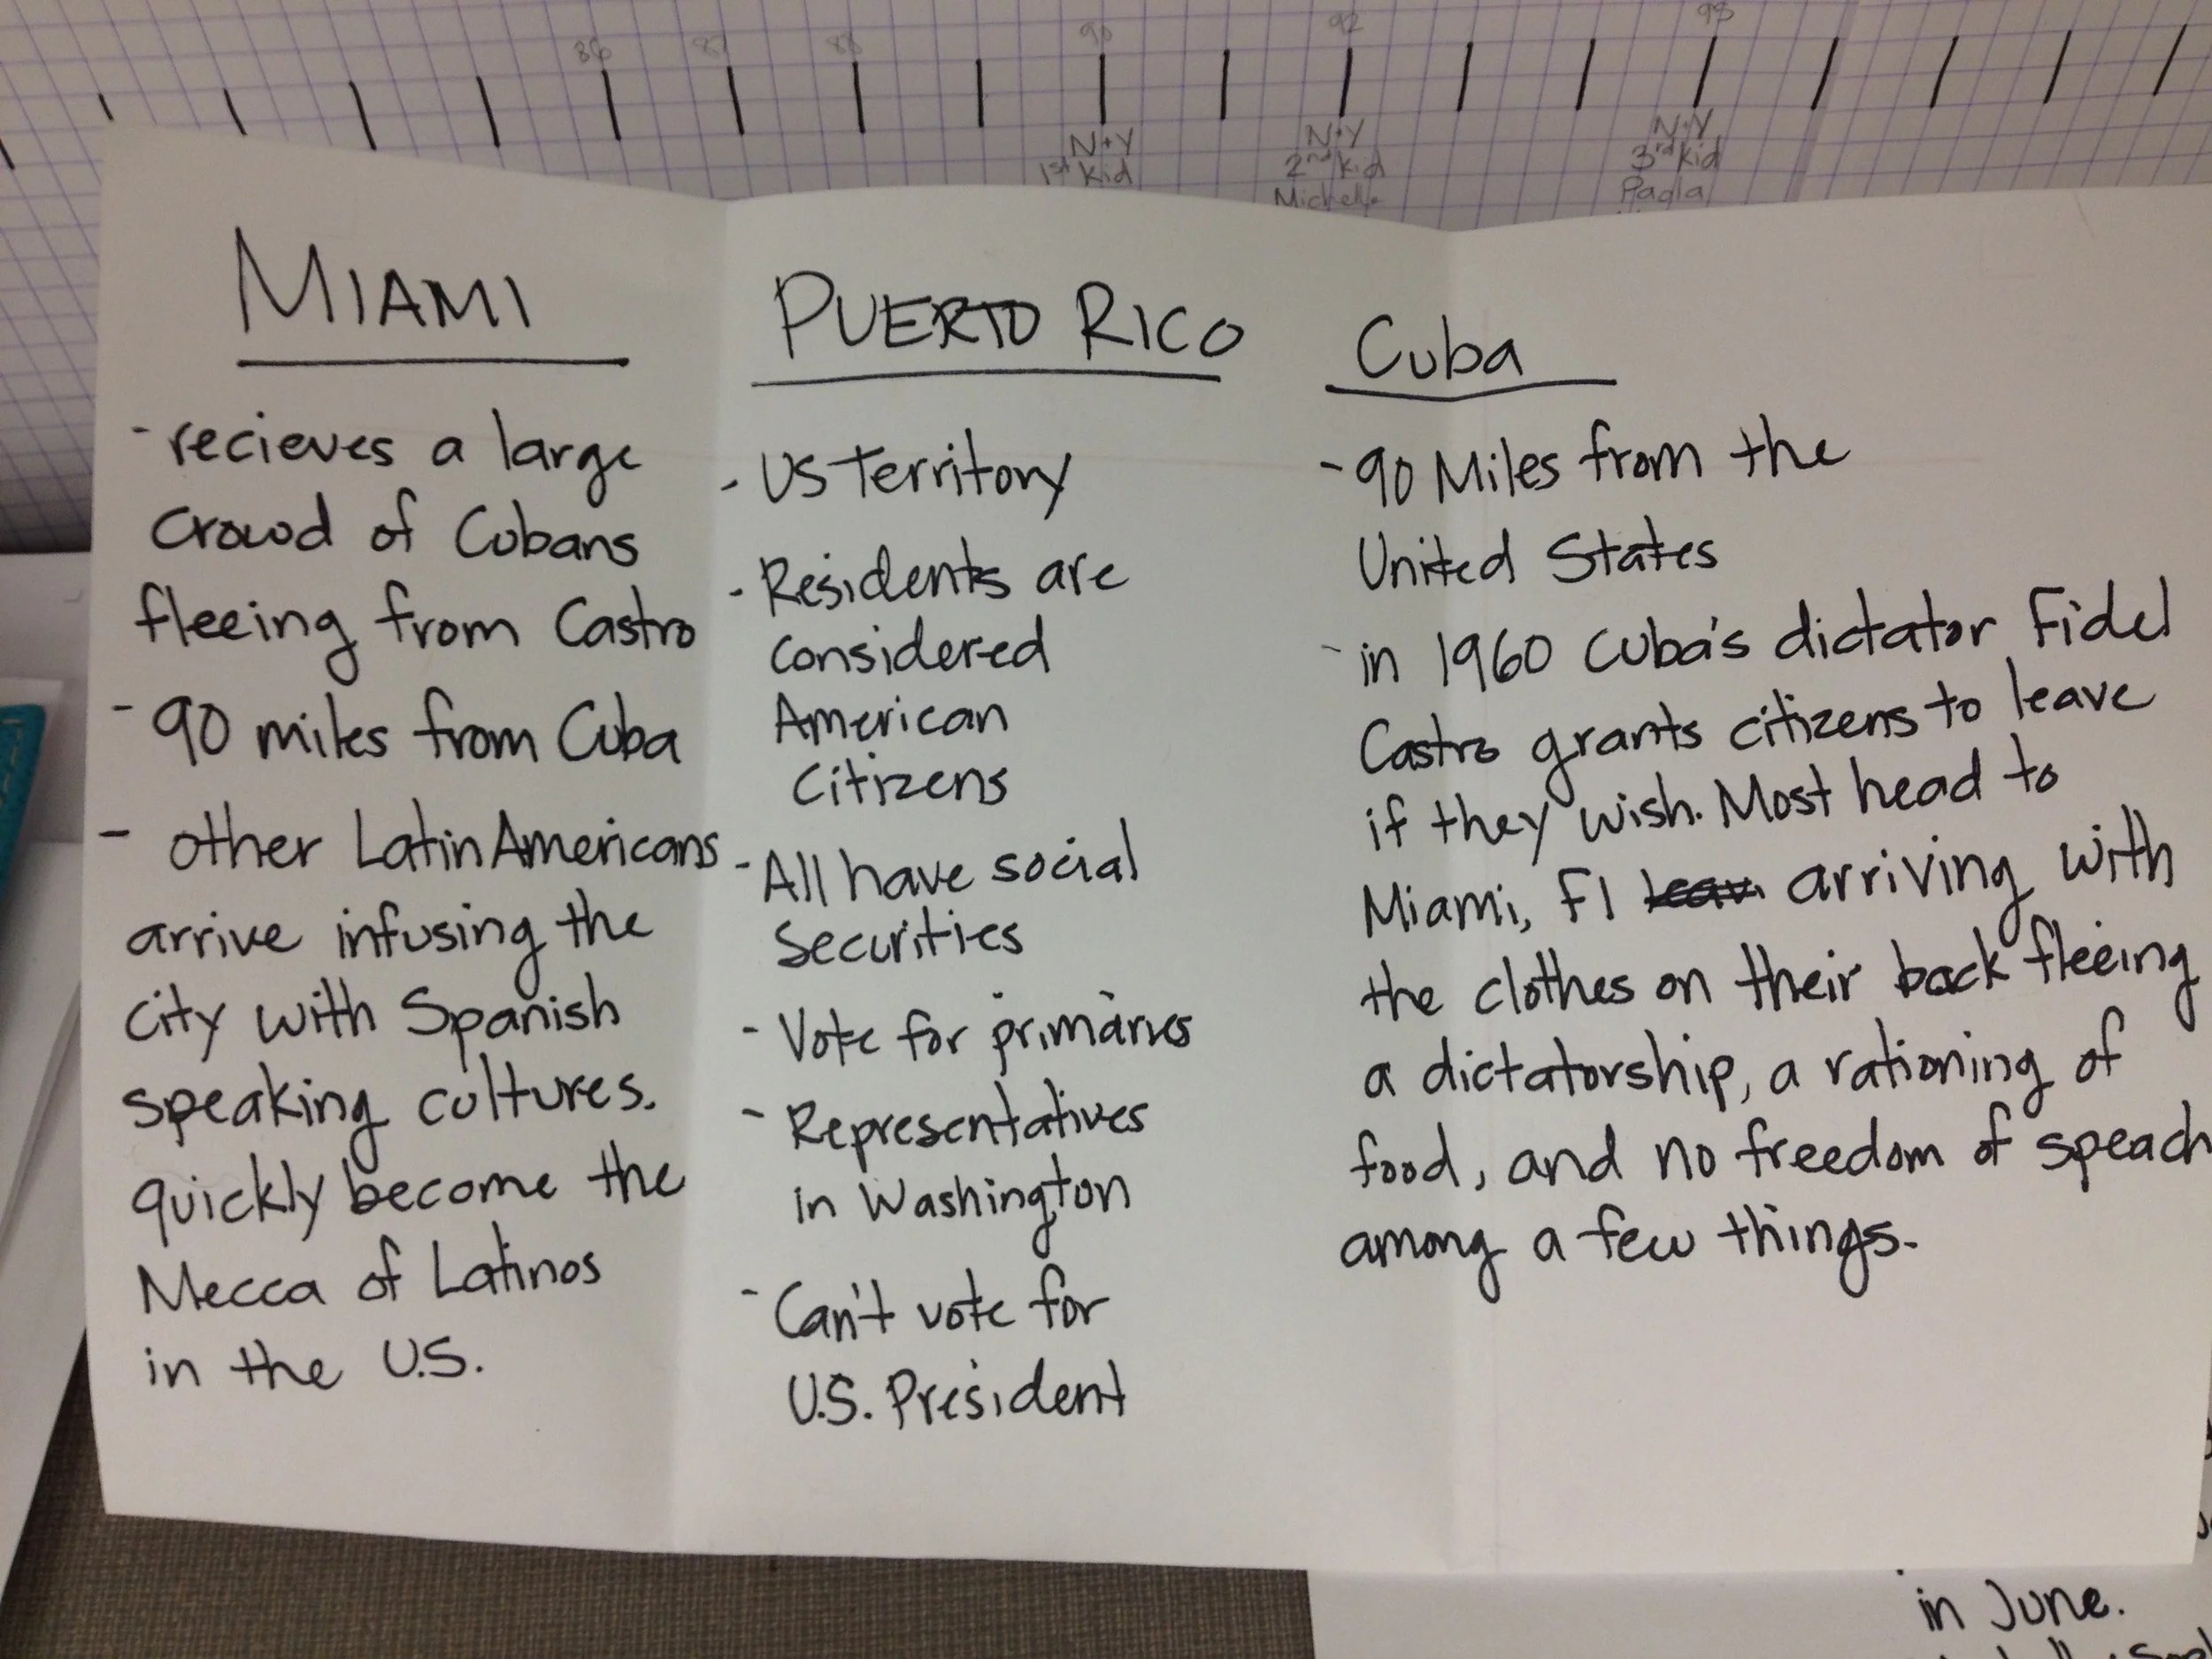 86 87 88 90 92 95
N+Y
1st kid
N+Y
2nd kid
Michelle
N+Y
3rd kid
Paola
MIAMI
- recieves a large
crowd of Cubans
fleeing from Castro
- 90 miles from Cuba
- other Latin Americans
arrive infusing the
city with Spanish
speaking cultures.
quickly become the
Mecca of Latinos
in the U.S.
PUERTO RICO
- US Territory
- Residents are
considered
American
Citizens
- All have social
securities
- Vote for primaries
- Representatives
in Washington
- Can't vote for
U.S. President
Cuba
- 90 Miles from the
United States
- in 1960 Cuba's dictator Fidel
Castro grants citizens to leave
if they wish. Most head to
Miami, Fl arriving with
the clothes on their back fleeing
a dictatorship, a rationing of
food, and no freedom of speach
among a few things.
in June.